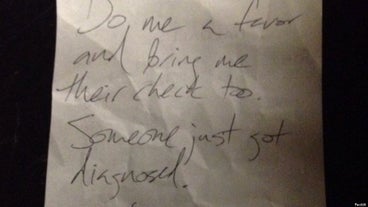 Do me a favor
and bring me
their check too.
Someone just got
diagnosed.